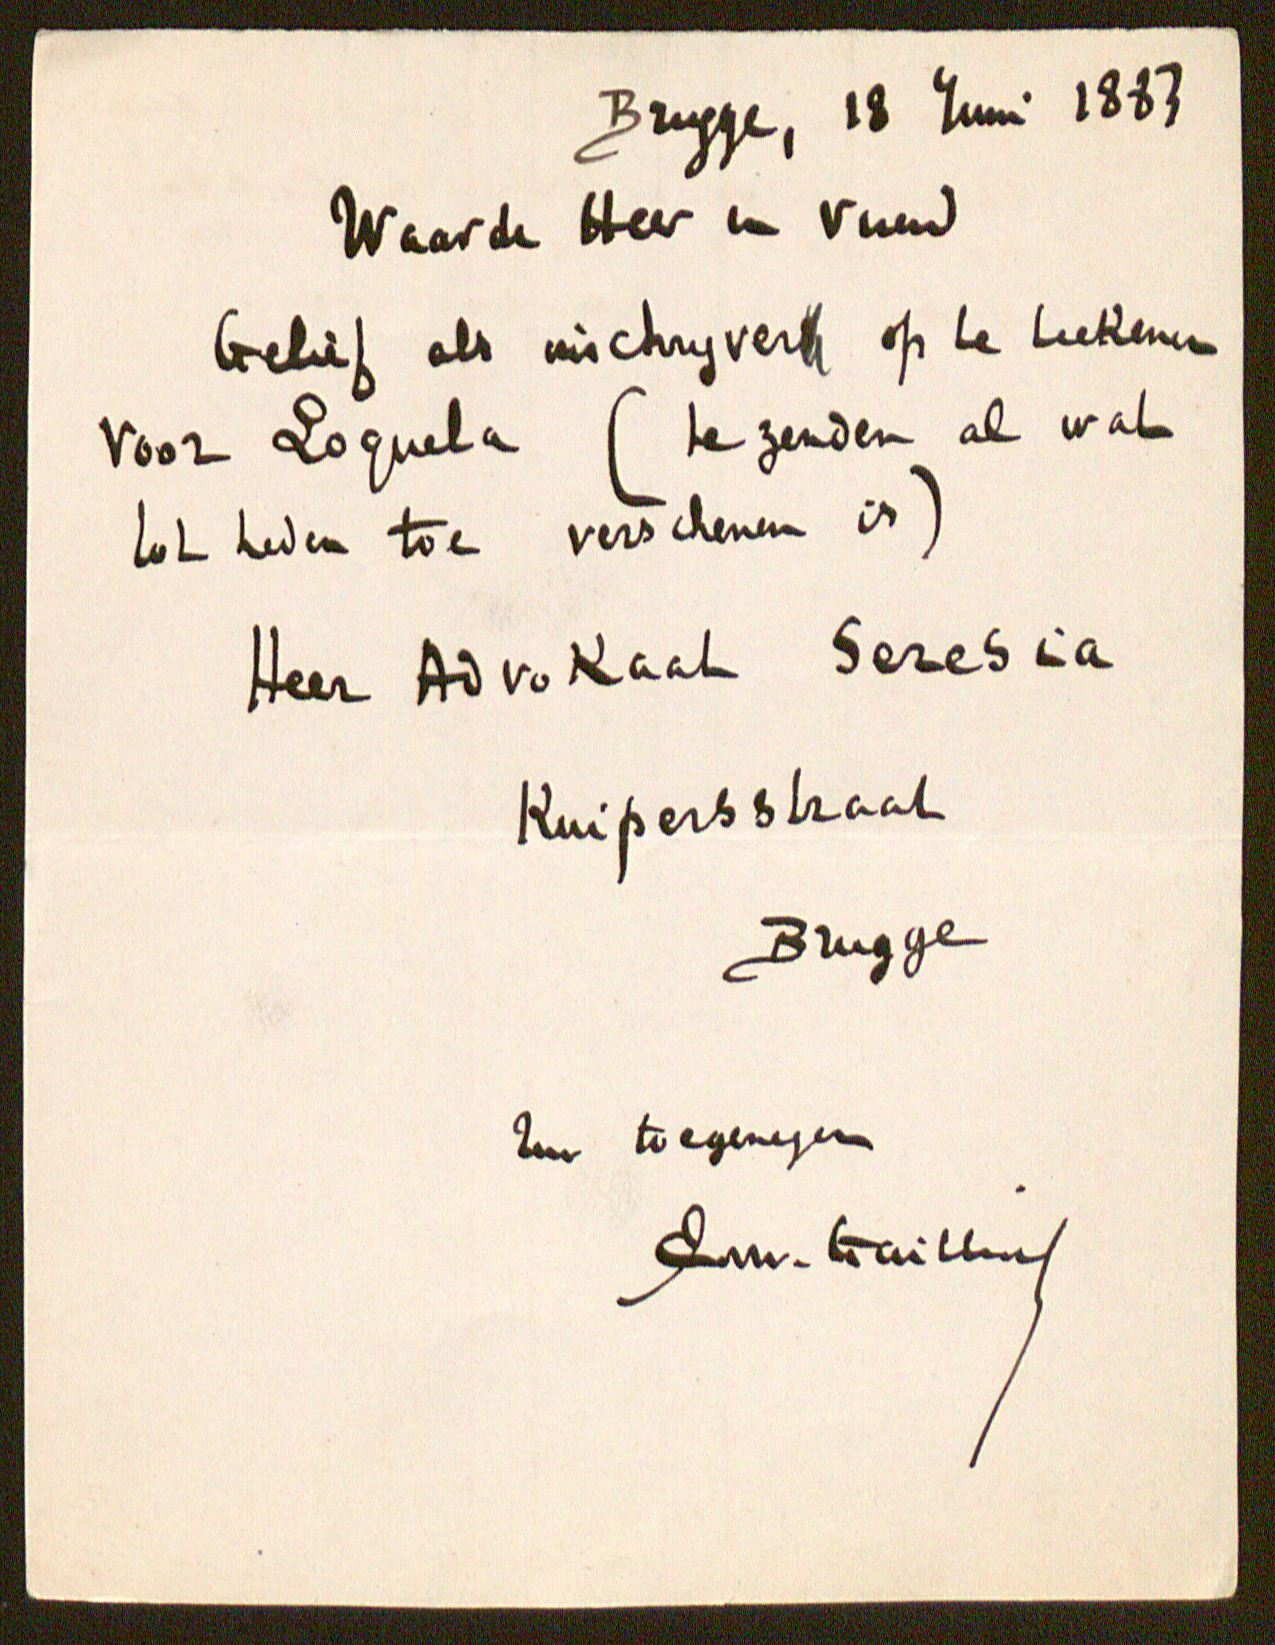 Brugge, 18 Juni 1883
Waarde Heer en Vriend
Gelief als inschryver op te teekenen
voor Loquela (te zenden al wat
tot heden toe verschenen is)
Heer Advokaat Seresia
Kuipersstraat
Brugge
Uw toegenegen